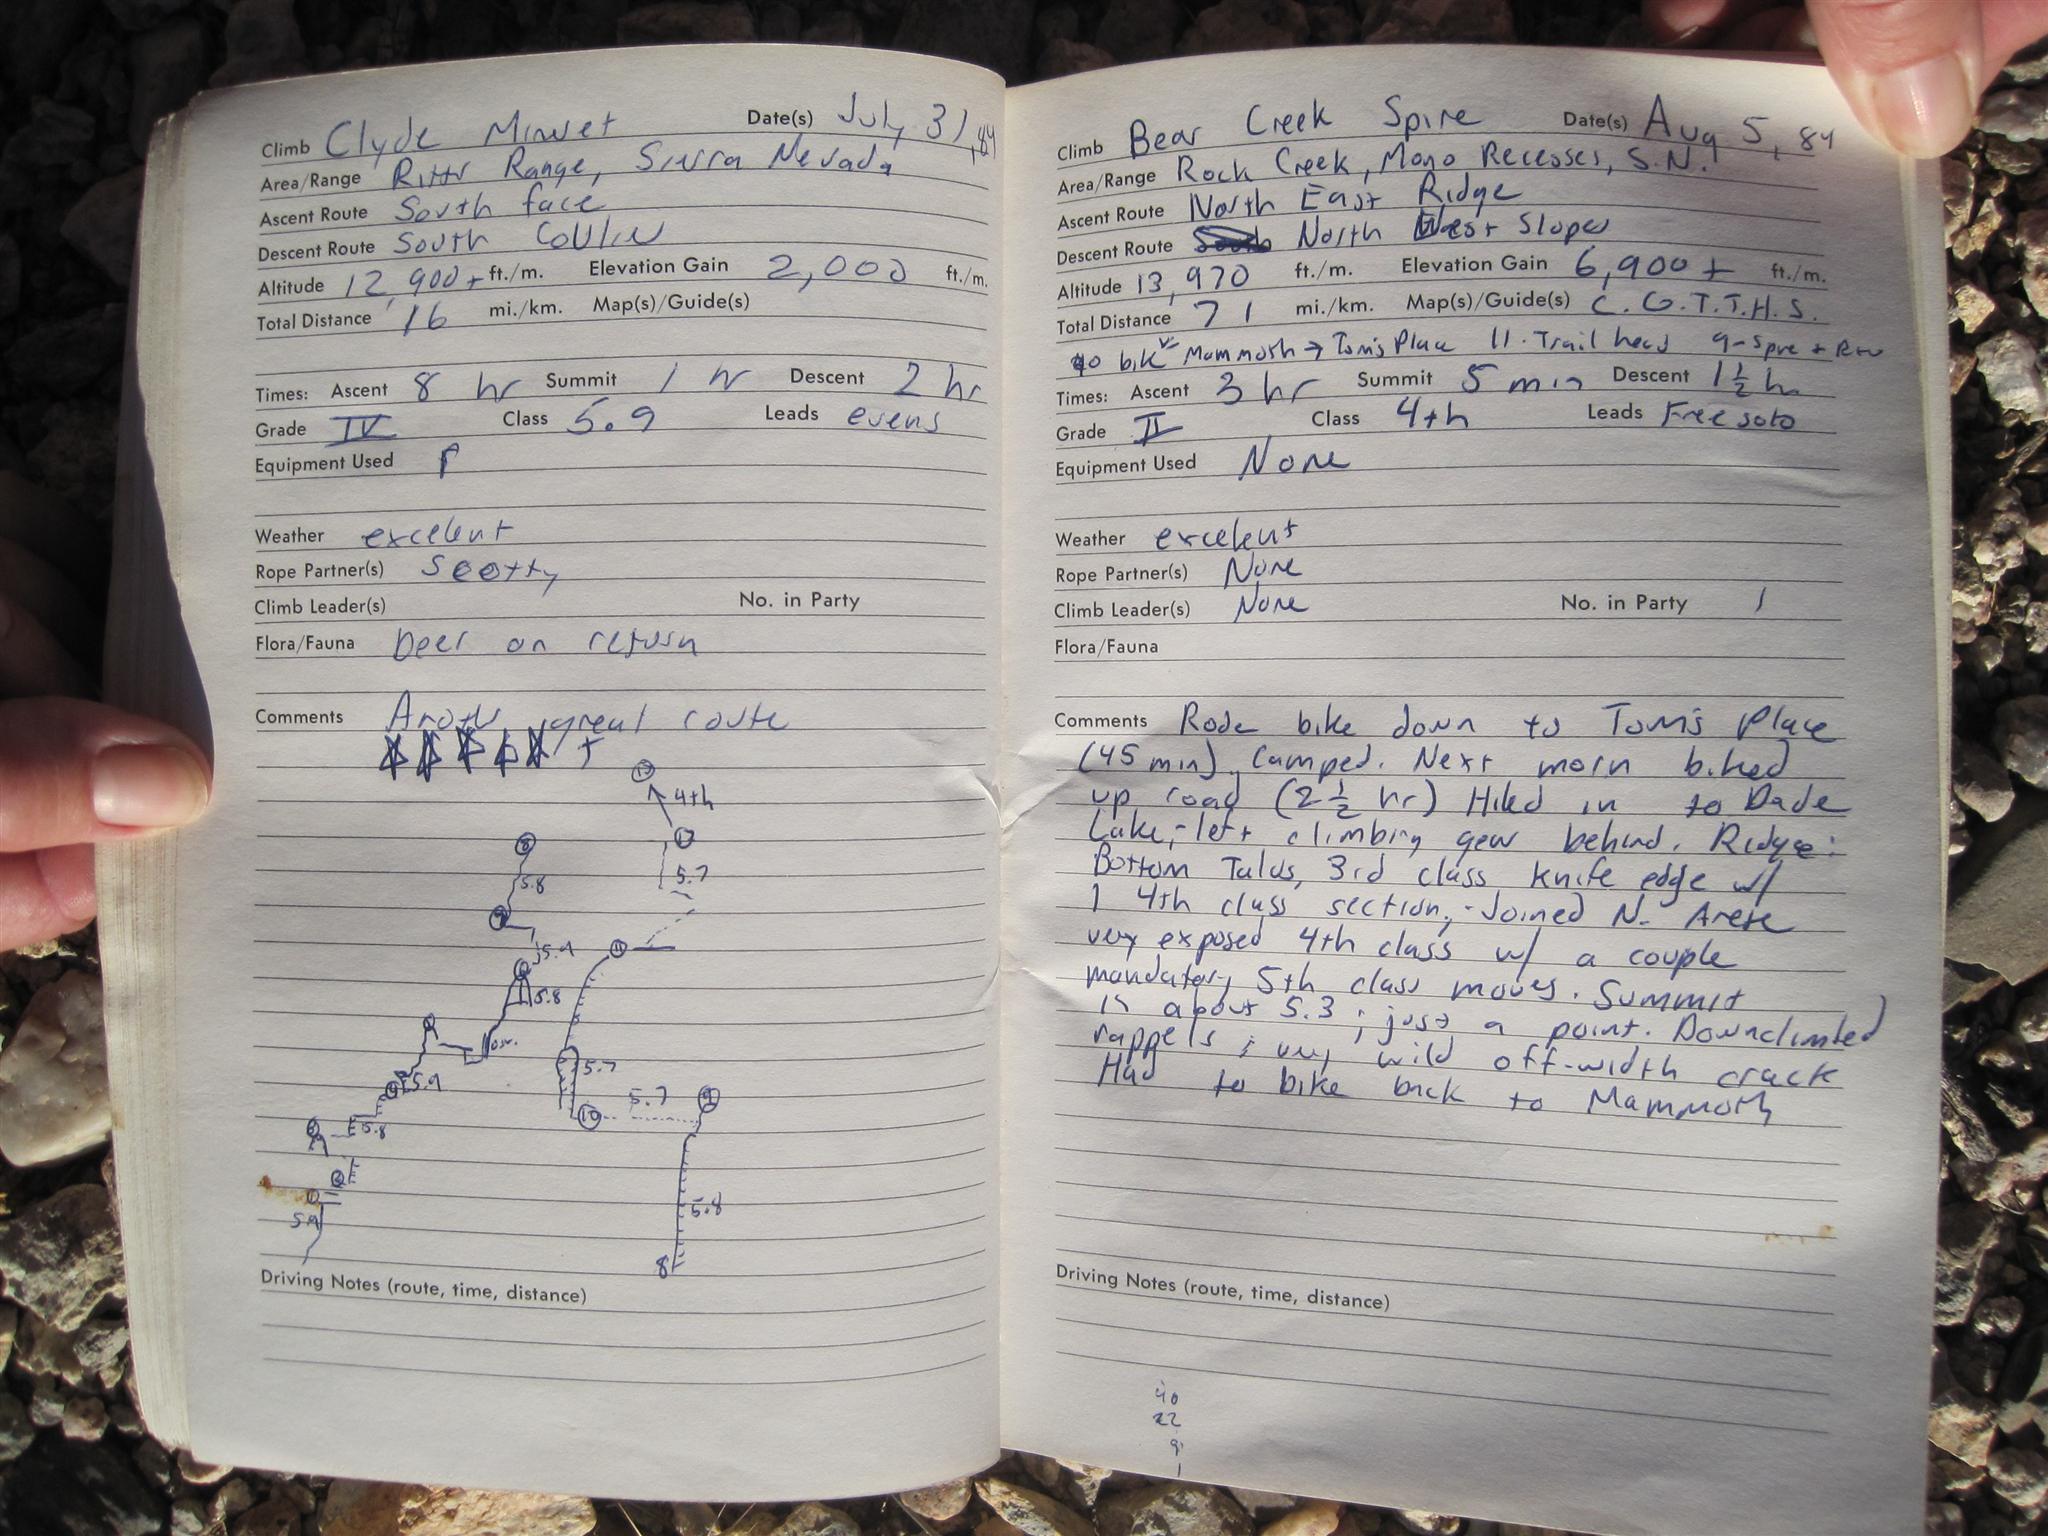 Climb Clyde Minuet Date(s) July 31, 84
Area/Range Rittr Range, Sierra Nevada
Ascent Route South face
Descent Route South Coulir
Altitude 12,900+ ft./m. Elevation Gain 2,000 ft./m.
Total Distance 16 mi./km. Map(s)/Guide(s)
Times: Ascent 8 hr Summit 1 hr Descent 2 hr
Grade IV Class 5.9 Leads evens
Equipment Used
Weather excelent
Rope Partner(s) Scotty
Climb Leader(s) No. in Party
Flora/Fauna Deer on return
Comments Anothr great route
+
13
4th
12
5.7
8
5.8
7
5.9
11
5.8
5.9
5.7
10
5.7
9
5.8
5.8
8
2
1
5.9
Driving Notes (route, time, distance)
Climb Bear Creek Spire Date(s) Aug 5, 84
Area/Range Rock Creek, Mono Recesses, S.N.
Ascent Route North East Ridge
Descent Route North West Slopes
Altitude 13,970 ft./m. Elevation Gain 6,900+ ft./m.
Total Distance 71 mi./km. Map(s)/Guide(s) C.G.T.T.H.S.
40 bike Mammoth → Tom's Place 11. Trail head 9-Spire + Rtn
Times: Ascent 3 hr Summit 5 min Descent 1 1/2 hr
Grade II Class 4th Leads Free solo
Equipment Used None
Weather excelent
Rope Partner(s) None
Climb Leader(s) None No. in Party 1
Flora/Fauna
Comments Rode bike down to Tom's Place
(45 min), Camped. Next morn biked
up road (2 1/2 hr) Hiked in to Dade
Lake,- left climbing gear behind. Ridge:
Bottom Talus, 3rd class knife edge w/
1 4th class section,- Joined N. Arete
very exposed 4th class w/ a couple
mandatory 5th class moves. Summit
is about 5.3 ; just a point. Downclimbed
rappels ; very wild off-width crack
Had to bike back to Mammoth
Driving Notes (route, time, distance)
40
22
9
1